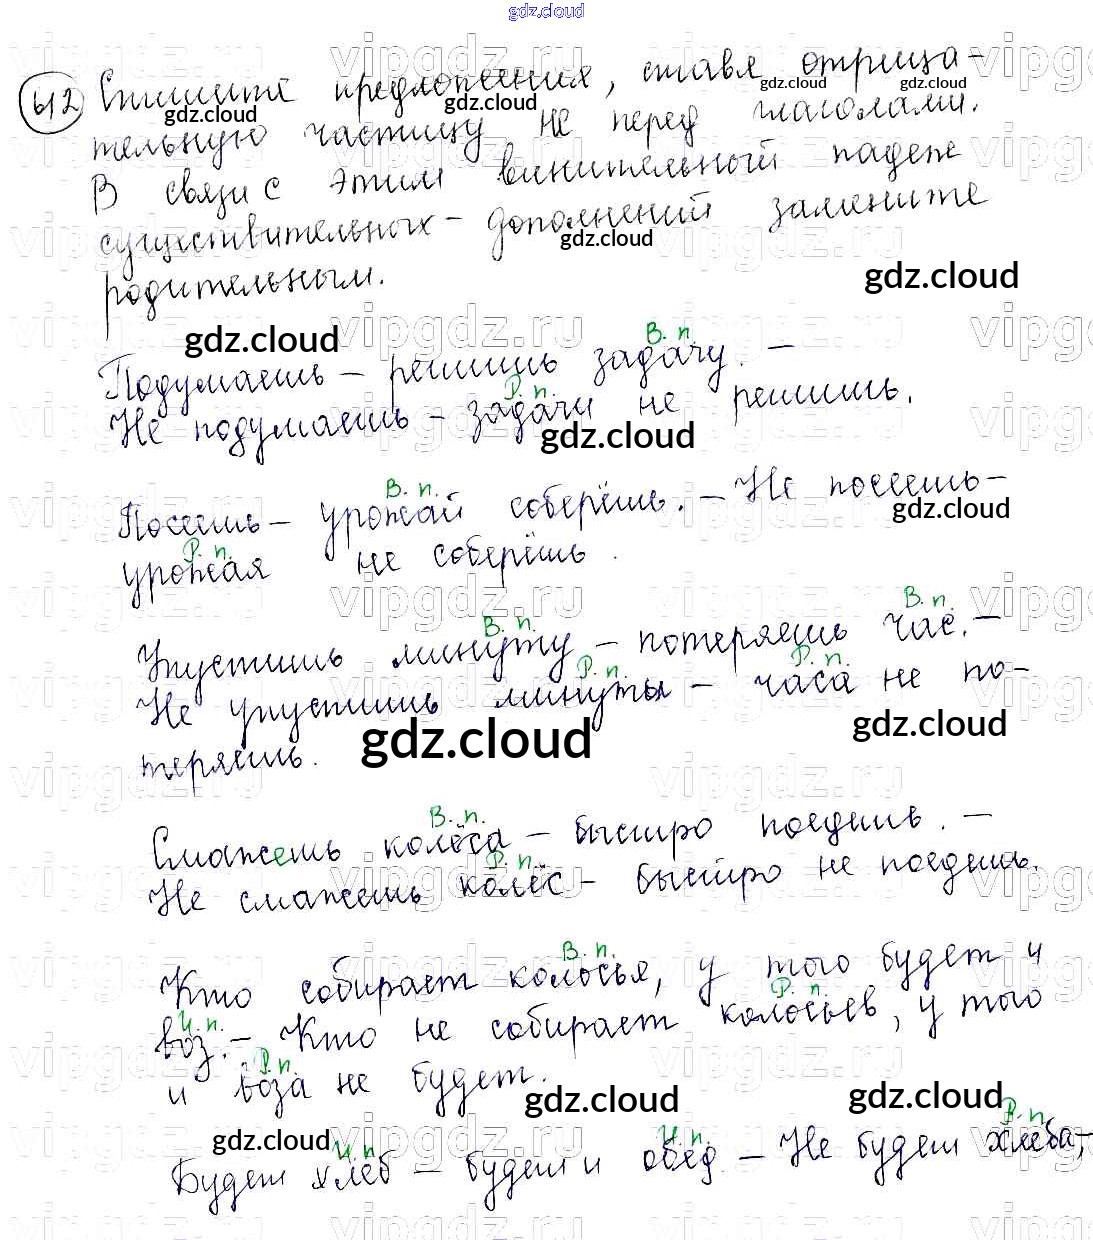 gdz.cloud
412 Спишите предложения, ставя отрица-
тельную частицу не перед глаголами.
В связи с этим винительный падеж
существительных - дополнений замените
родительным.
В. п.
Подумаешь - решишь задачу. -
Р. п.
Не подумаешь - задачи не решишь.
В. п.
Посеешь - урожай соберёшь. - Не посеешь -
Р. п.
урожая не соберёшь.
В. п. В. п.
Упустишь минуту - потеряешь час. -
Р. п. Р. п.
Не упустишь минуты - часа не по-
теряешь.
В. п.
Смажешь колёса - быстро поедешь. -
Р. п.
Не смажешь колёс - быстро не поедешь.
В. п.
Кто собирает колосья, у того будет и
И. п. Р. п.
воз. - Кто не собирает колосьев, у того
Р. п.
и воза не будет.
И. п. И. п. Р. п.
Будет хлеб - будет и обед. - Не будет хлеба -,